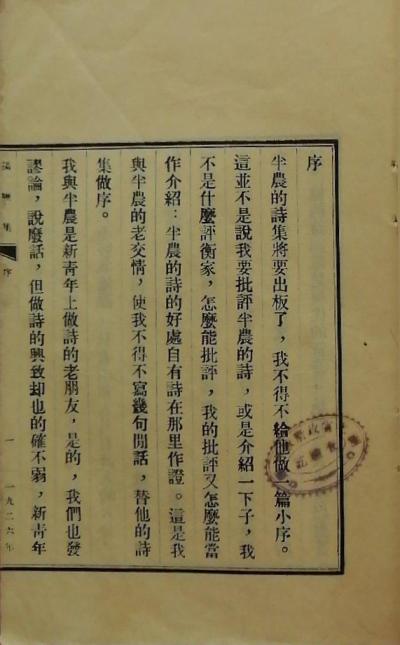 序
半農的詩集將要出板了，我不得不給他做一篇小序。
這並不是說我要批評半農的詩，或是介紹一下子，我
不是什麼評衡家，怎麼能批評，我的批評又怎麼能當
作介紹：半農的詩的好處自有詩在那里作證。這是我
與半農的老交情，使我不得不寫幾句閒話，替他的詩
集做序。
我與半農是新青年上做詩的老朋友，是的，我們也發
謬論，說廢話，但做詩的興致却也的確不弱，新青年
揚鞭集 序 一 一九二六年